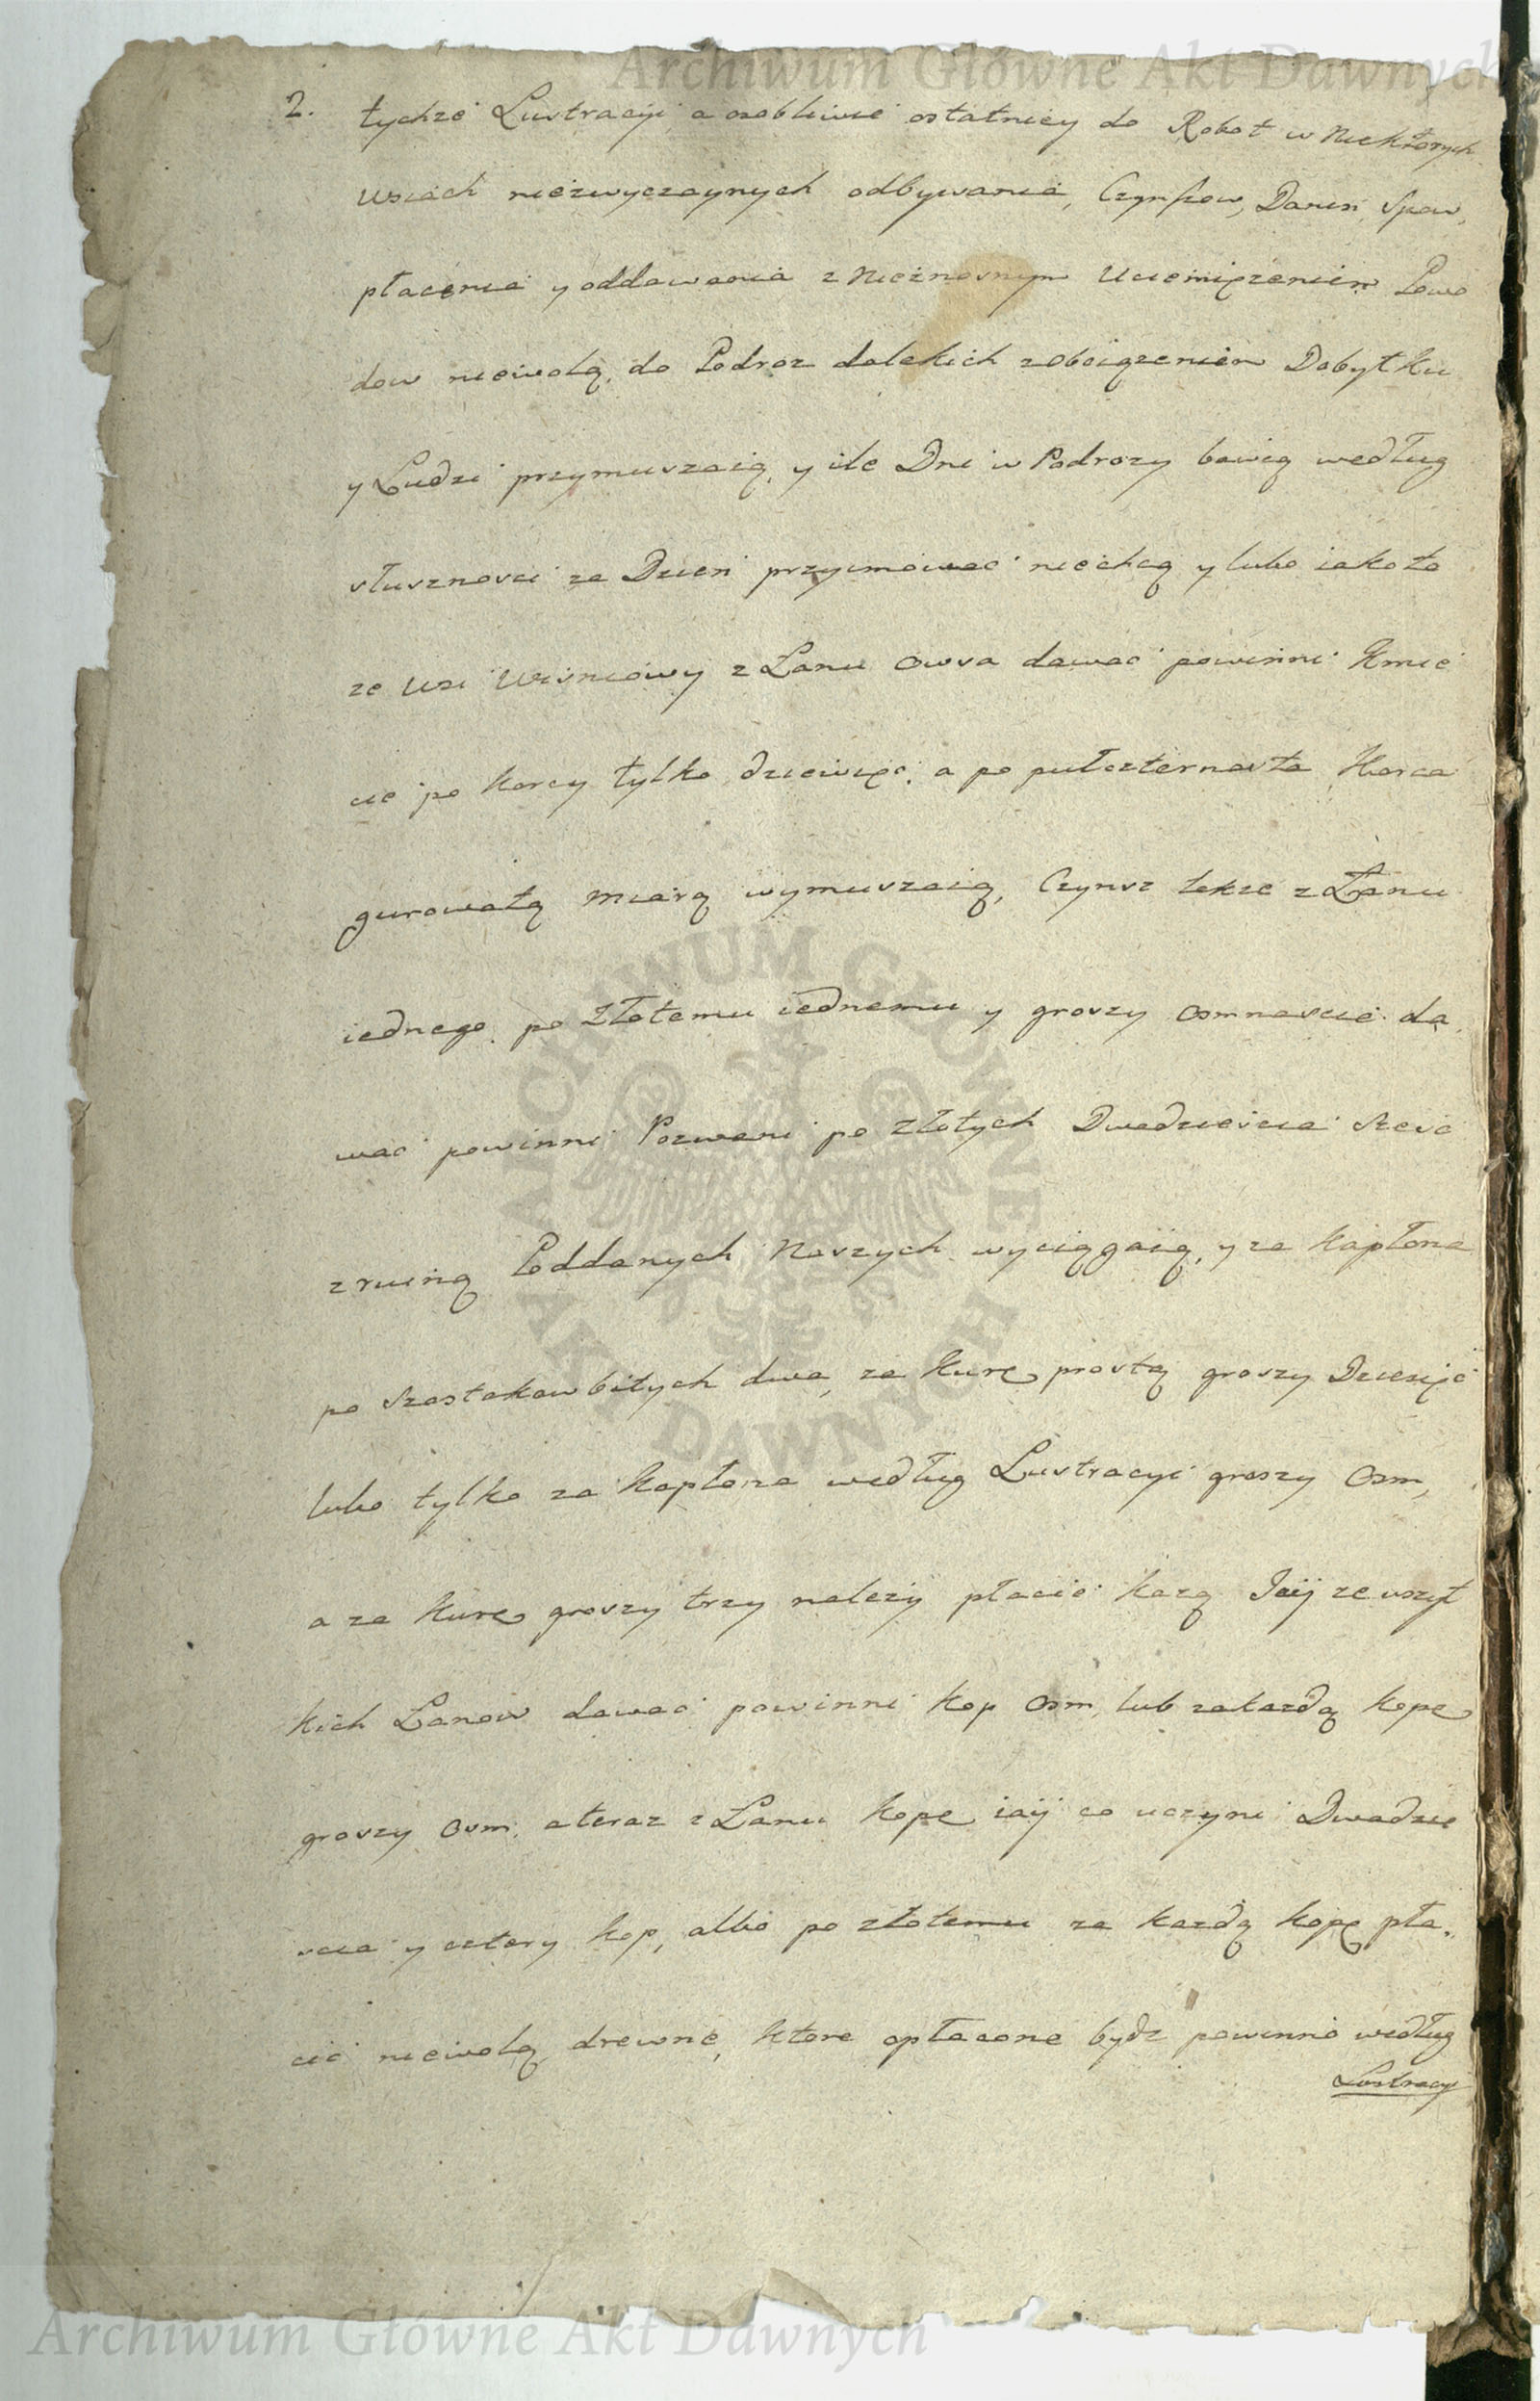 Archiwum Główne Akt Dawnych
2. tychże Lustracyi a osobliwie ostatniey do Robot w Niektorych
wsiach niezwyczaynych odbywania, Czynszow, Danin, Spow,
płacenia y oddawania z Nieznosnym Uciemiężeniem Powo
dow niewolą, do Podroz dalekich zobciązeniem Dobytku
y Ludzi przymuszaią, y ile Dni w Podrozy bawią według
słusznosci za Dzien przyimowac niechcą y lubo iako to
ze wsi Wisniowy z Łanu Owsa dawac powinni Kmie
cie po Korcy tylko dziewięc, a po pułczternasta Korca
gurowatą miarą wymuszaią, Czynsz takze z Łanu
iednego po Złotemu iednemu y groszy osmnascie da
wac powinni Pozwani po Złotych Dwadziescia szesc
z ruiną Poddanych Naszych wyciągaią, y za kapłona
po szostakow bitych dwa, za kurę prostą groszy Dziesięc
lubo tylko za kapłona według Lustracyi groszy osm,
a za kurę groszy trzy nalezy płacic kazą Jaij ze wszyt
kich Łanow dawac powinni kop osm, lub zakazdą kopę
groszy osm, a teraz z Łanu kopę iaij co uczyni Dwadzie
scia y cztery kop, albo po złotemu za kazdą kopę pła,
cic niewolą, drewne, ktore opłacone bydz powinno według
Lustracyi
ARCHIWUM GŁÓWNE AKT DAWNYCH
Archiwum Główne Akt Dawnych